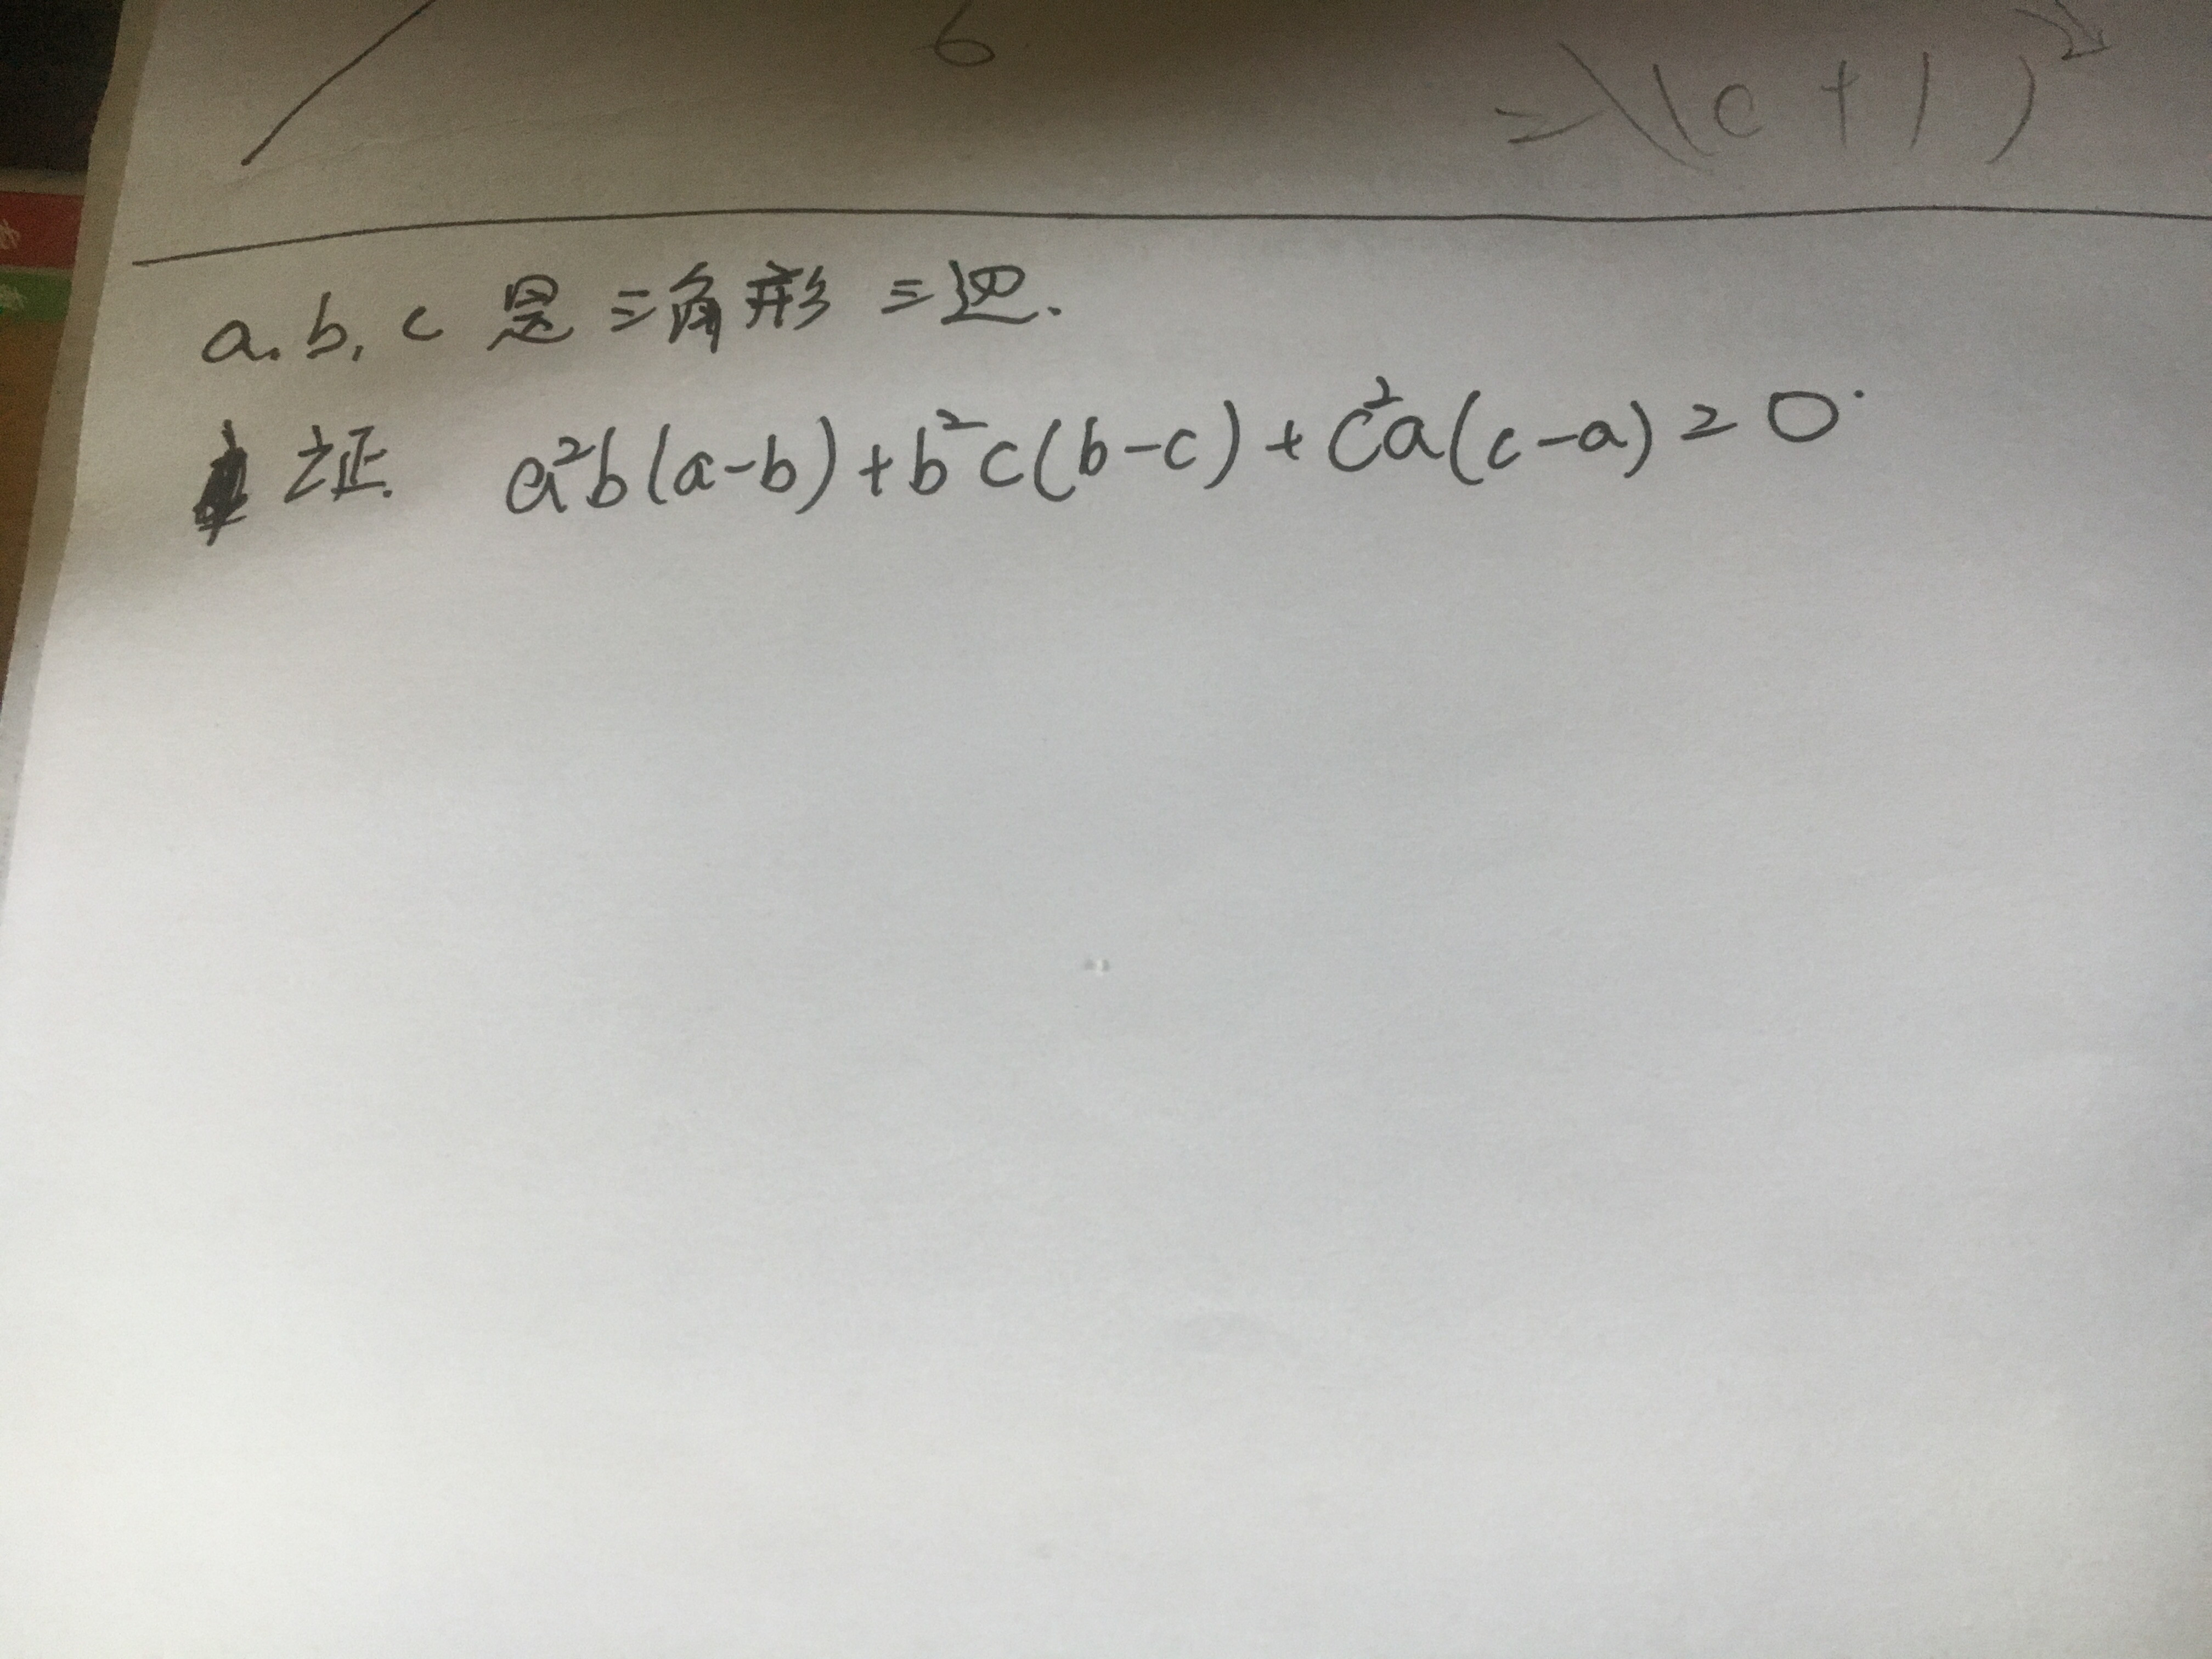 6
=\(c+1)²
a.b,c 是三角形三边.
证. a²b(a-b)+b²c(b-c)+c²a(c-a)≥0.